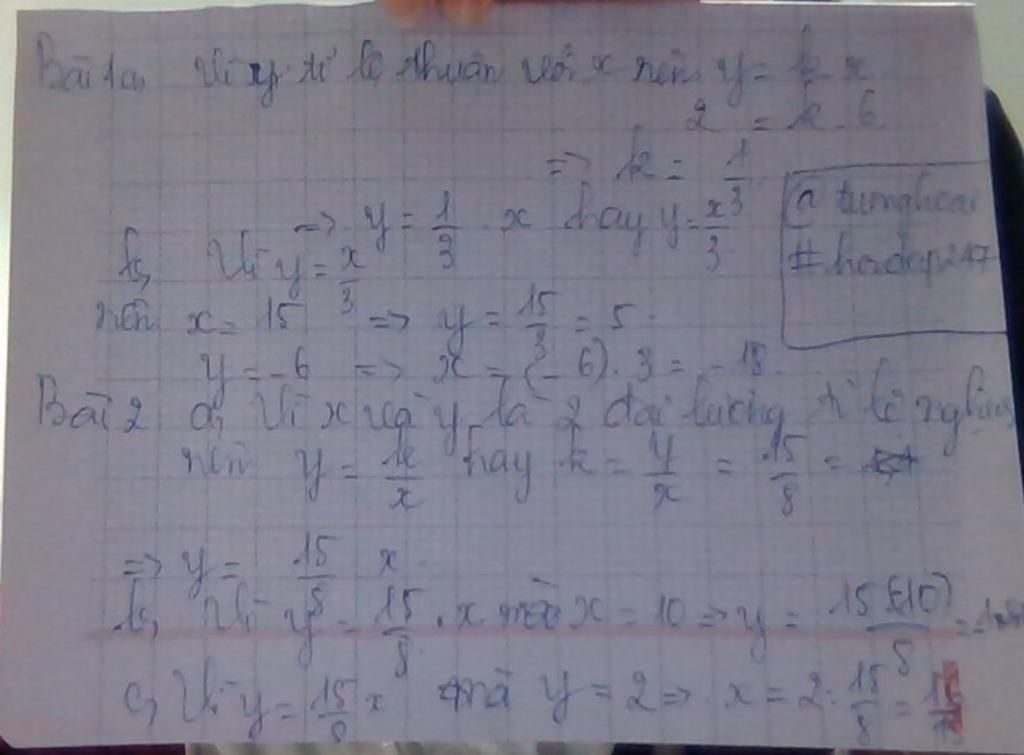 Bài 1a, Vì y tỉ lệ thuận với x nên y = k x
2 = k . 6
=> k = 1/3
=> y = 1/3 . x hay y = x/3
b, Vì y = x/3
nên x = 15 => y = 15/3 = 5
y = -6 => x = (-6) . 3 = -18
Bài 2 a, Vì x và y là 2 đại lượng tỉ lệ nghịch
nên y = k/x hay k = y/x = 15/8 =
=> y = 15/8 x
b, Vì y = 15/8 . x x = 10 => y = 15(-10)/8 =
c, Vì y = 15/8 x mà y = 2 => x = 2 . 15/8 =
@